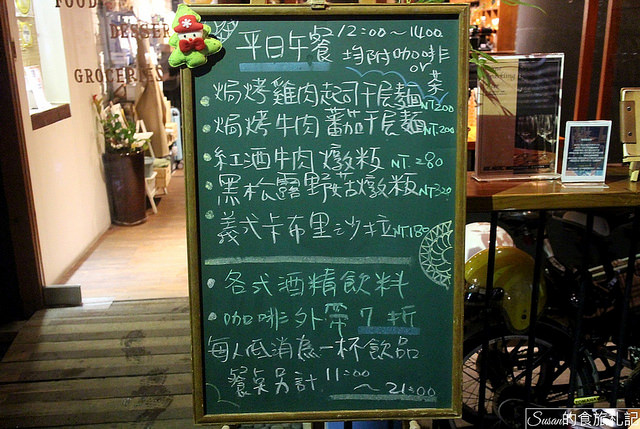 FOOD
DESSER
GROCERIES
平日午餐 12:00~14:00
均附咖啡or茶
焗烤雞肉起司千層麵NT200
焗烤牛肉蕃茄千層麵NT200
紅酒牛肉燉飯 NT.280
黑松露野菇燉飯NT320
義式卡布里沙拉NT180
各式酒精飲料
咖啡外帶7折
每人低消為一杯飲品
餐點另計 11:00~21:00
Susan的食旅札記